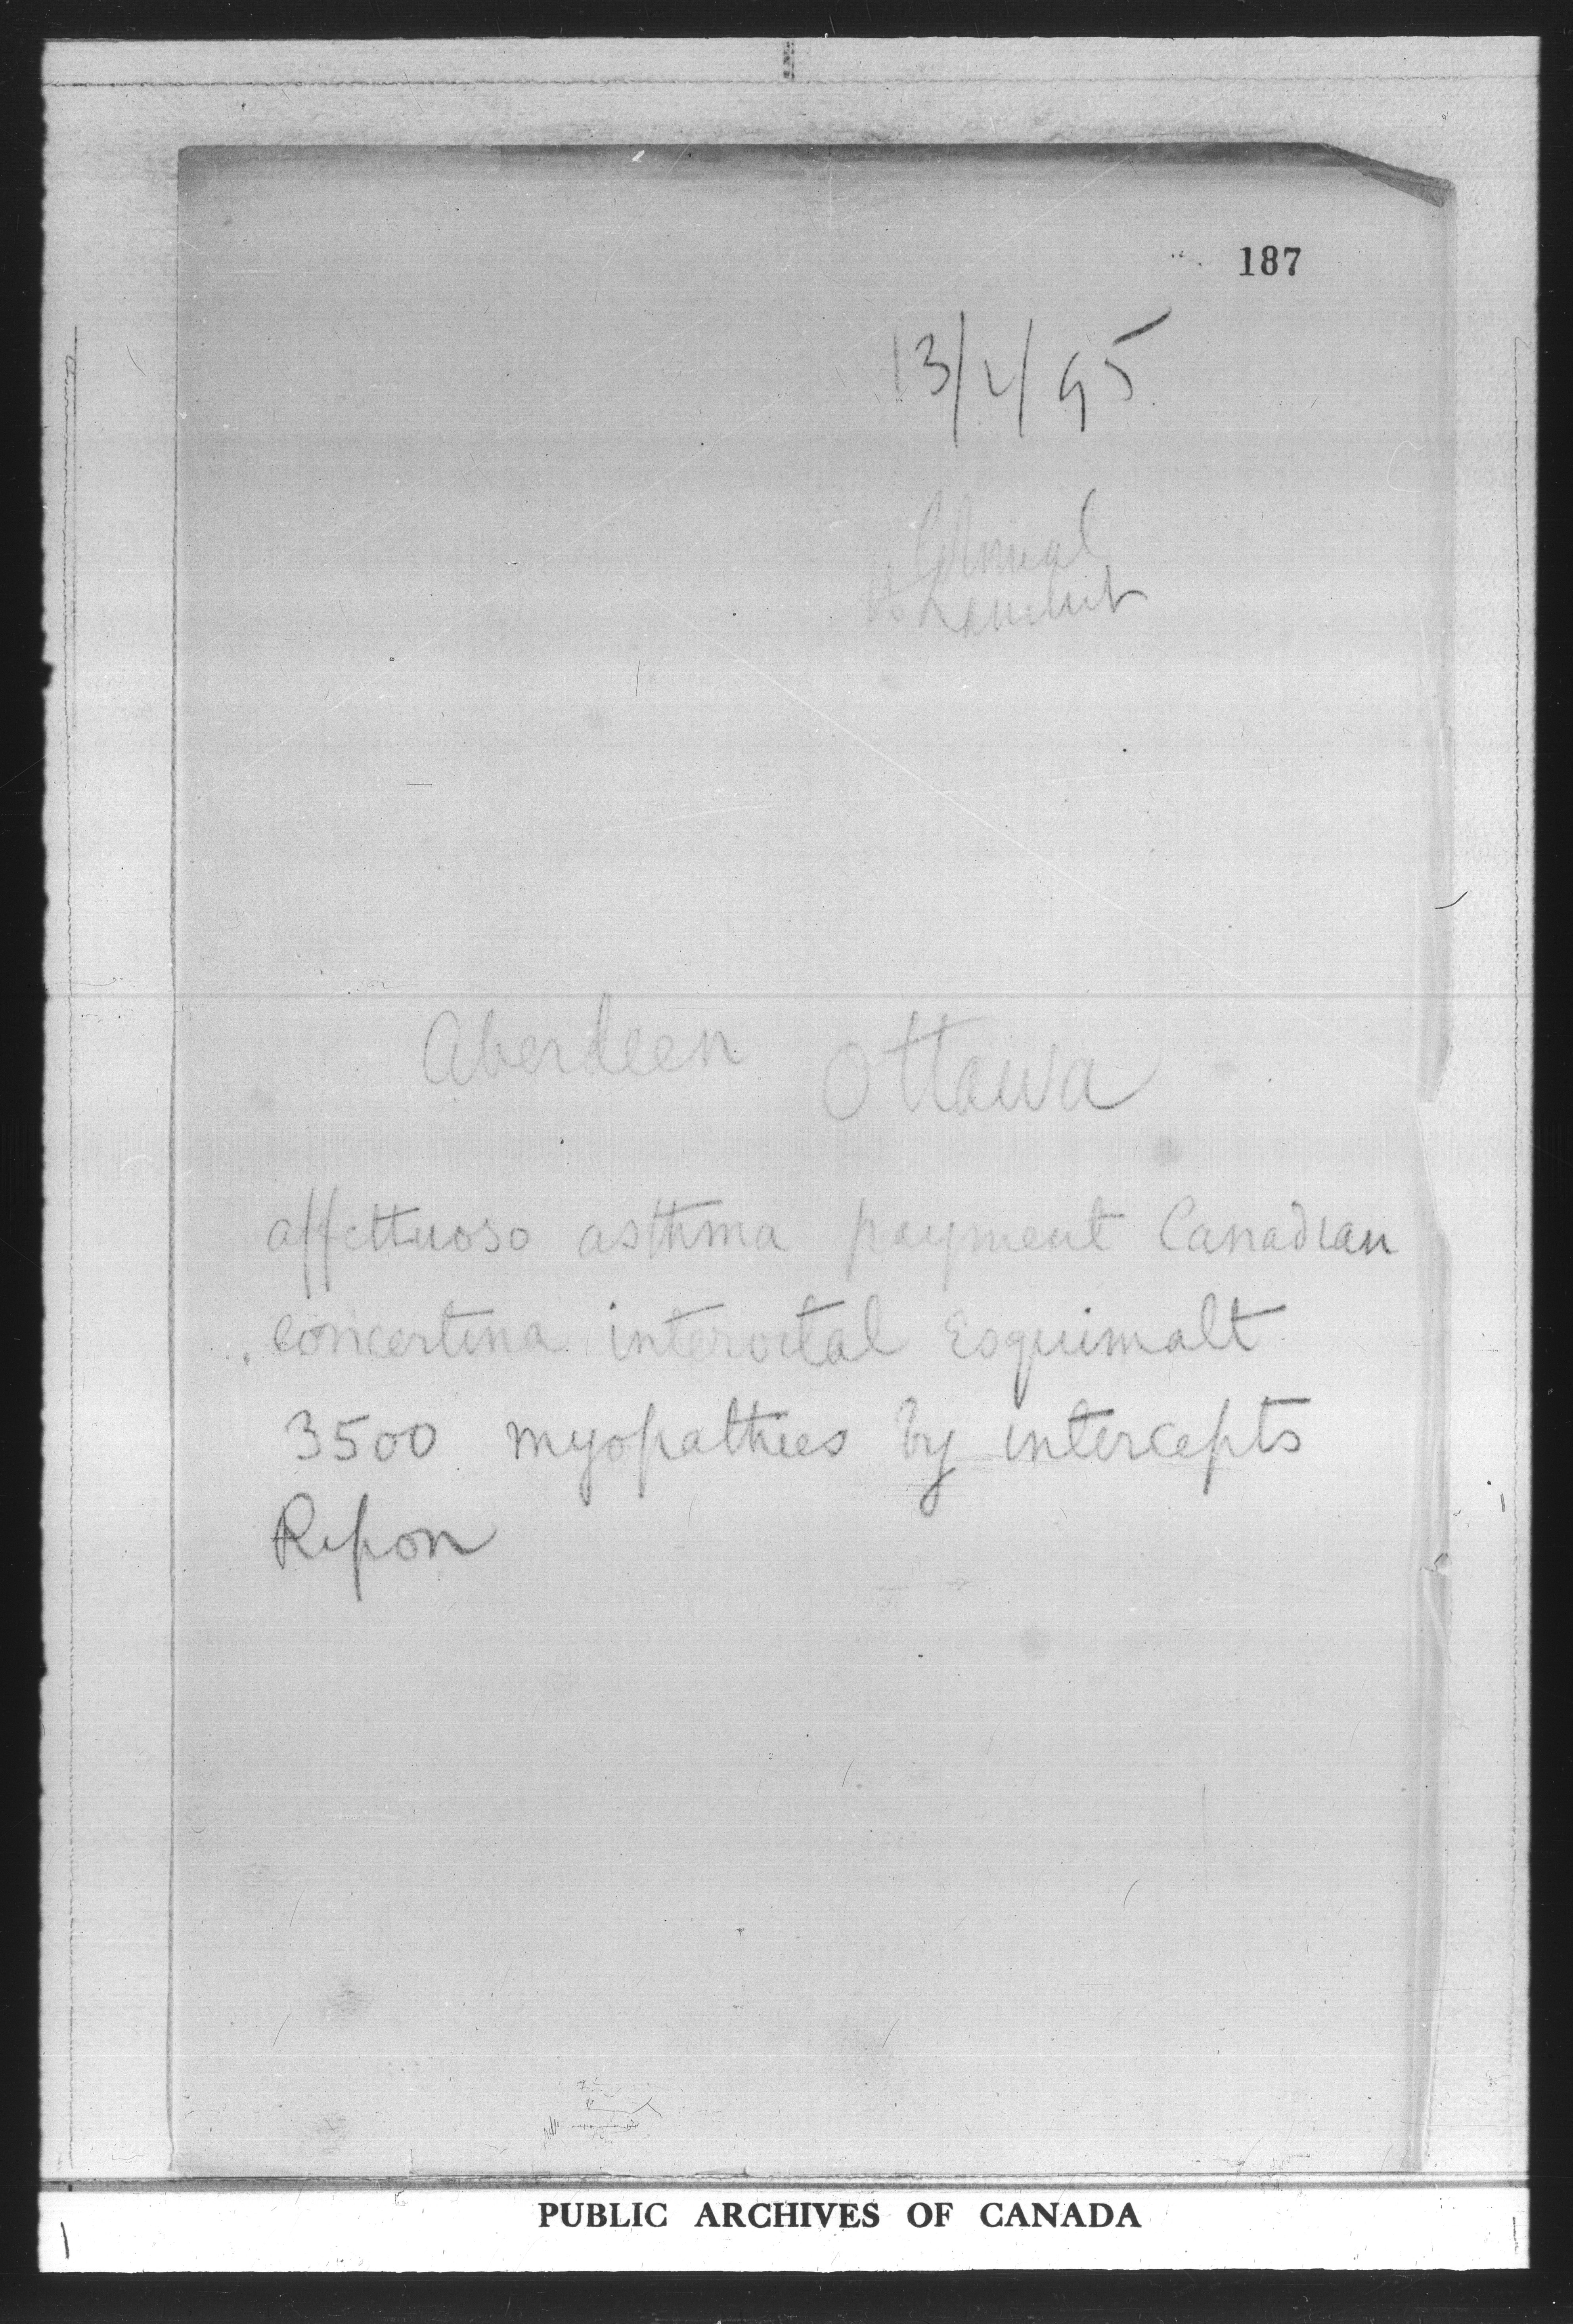 187
13/4/95
Colonial
Aberdeen Ottawa
affettuoso asthma payment Canadian
concertina interoctal Esquimalt
3500 myopathies by intercepts
Ripon
PUBLIC ARCHIVES OF CANADA